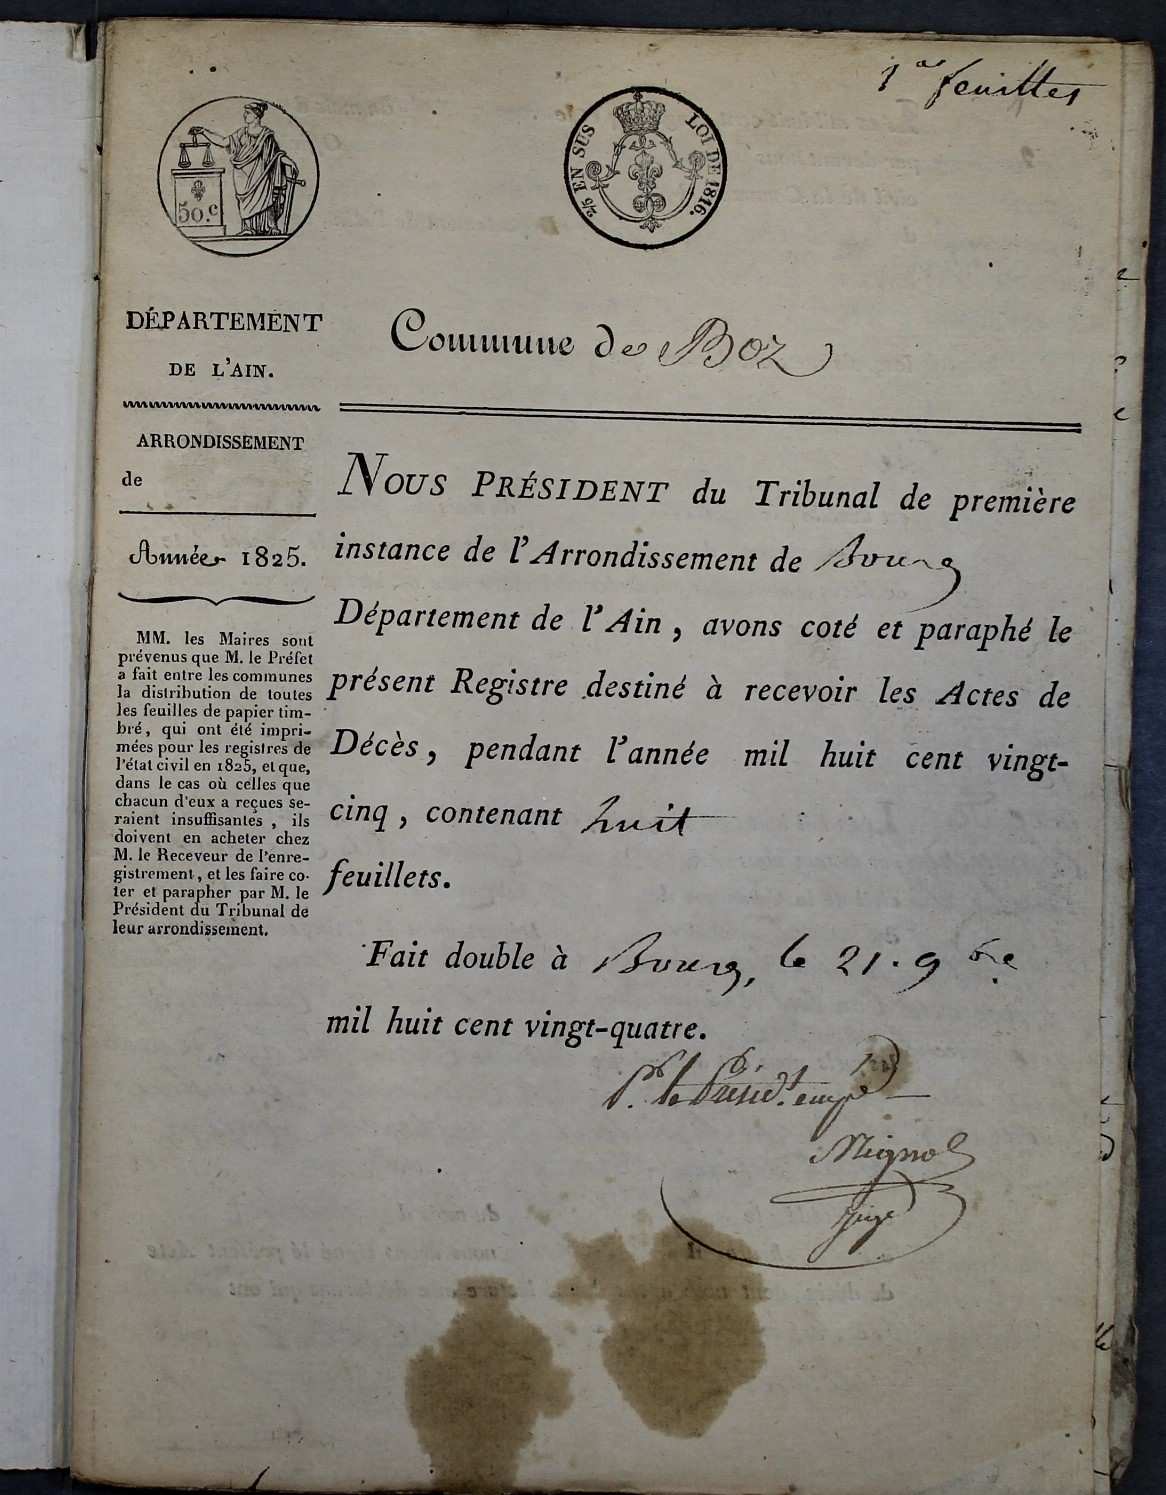 1re feuilles
50.c
2/5 EN SUS LOI DE 1816.
DÉPARTEMENT
DE L'AIN.
Commune de Boz
ARRONDISSEMENT
de
Année 1825.
MM. les Maires sont
prévenus que M. le Préfet
a fait entre les communes
la distribution de toutes
les feuilles de papier tim-
bré, qui ont été impri-
mées pour les registres de
l'état civil en 1825, et que,
dans le cas où celles que
chacun d'eux a reçues se-
raient insuffisantes, ils
doivent en acheter chez
M. le Receveur de l'enre-
gistrement, et les faire co-
ter et parapher par M. le
Président du Tribunal de
leur arrondissement.
NOUS PRÉSIDENT du Tribunal de première
instance de l'Arrondissement de Bourg
Département de l'Ain, avons coté et paraphé le
présent Registre destiné à recevoir les Actes de
Décès, pendant l'année mil huit cent vingt-
cinq, contenant huit
feuillets.
Fait double à Bourg, le 21. 9bre
mil huit cent vingt-quatre.
Pr. le Présidt. empé
Mignot
Juge